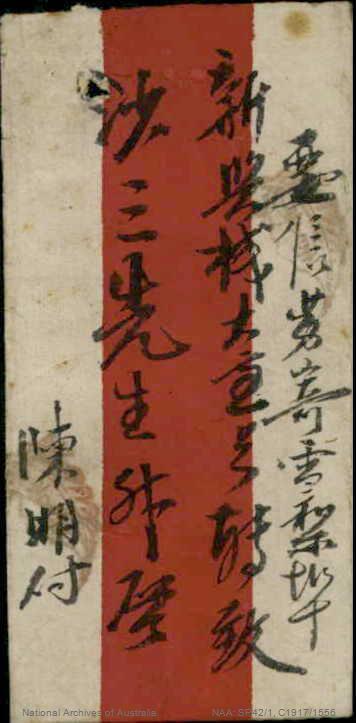 要信劳寄雪梨埠
新興棧大宝号轉致
三先生升啓
陳明付
National Archives of Australia
NAA: SP42/1, C1917/1556